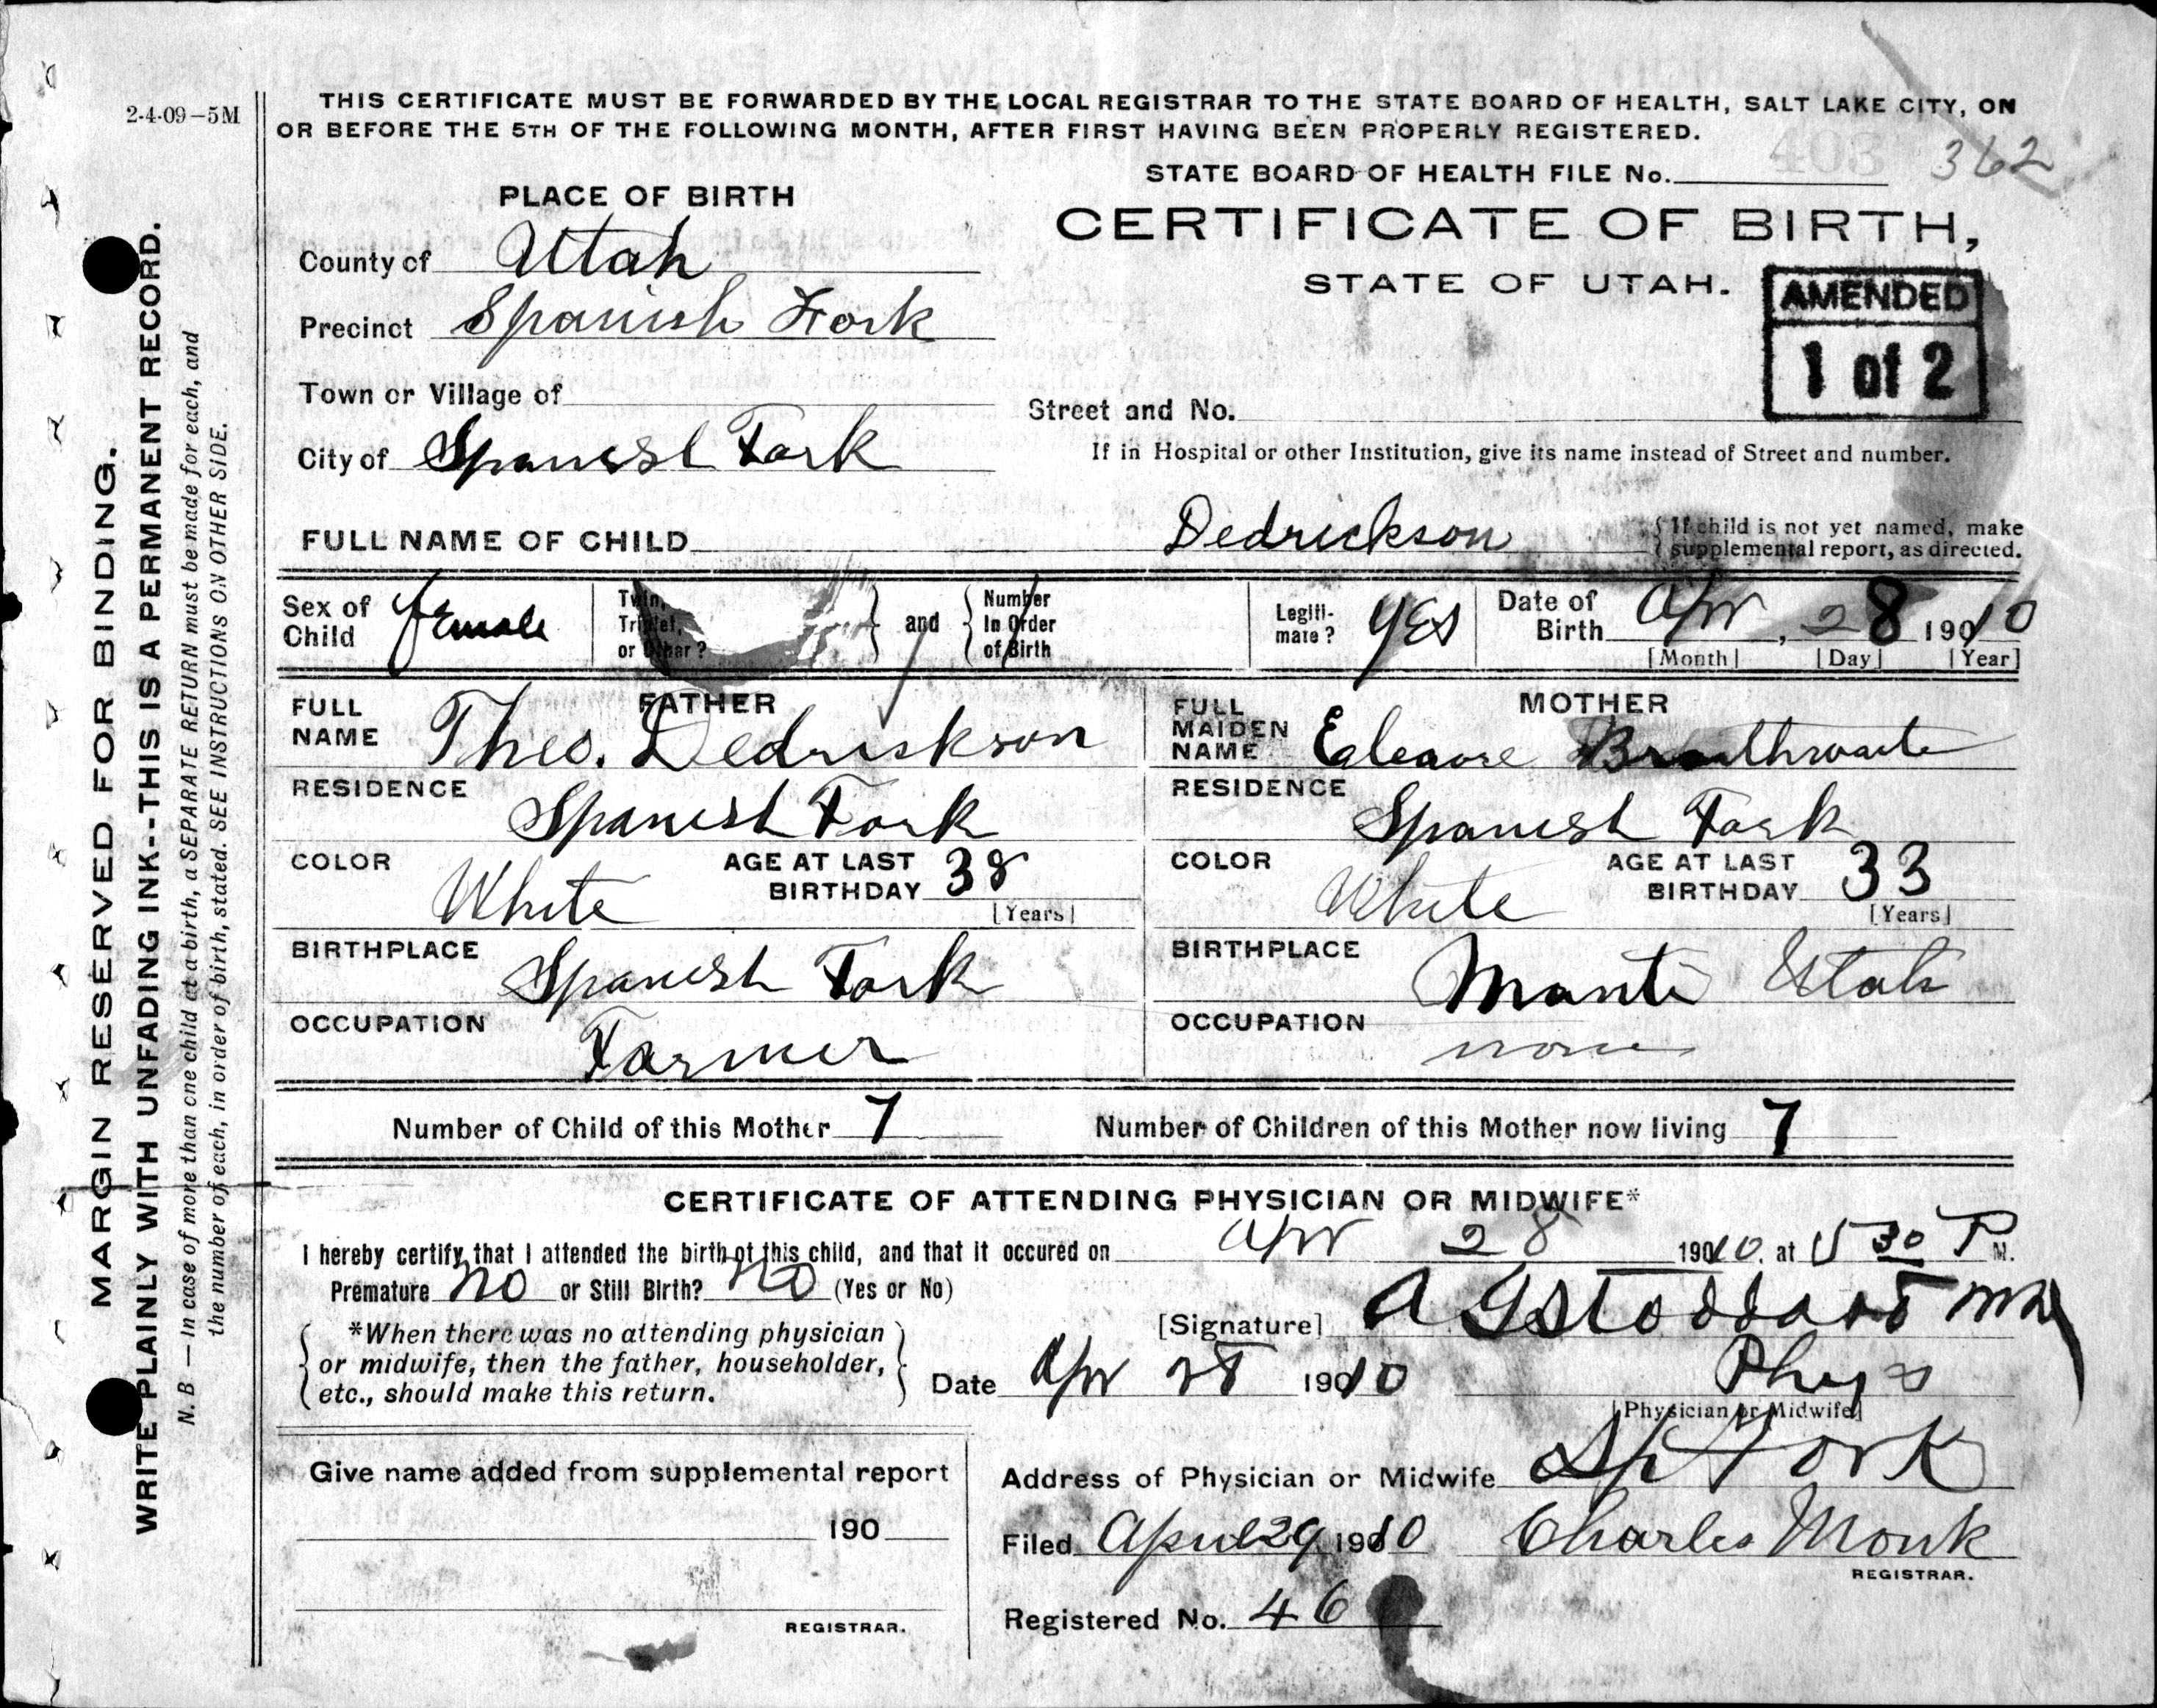 2-4-09-5M
THIS CERTIFICATE MUST BE FORWARDED BY THE LOCAL REGISTRAR TO THE STATE BOARD OF HEALTH, SALT LAKE CITY, ON
OR BEFORE THE 5TH OF THE FOLLOWING MONTH, AFTER FIRST HAVING BEEN PROPERLY REGISTERED.
STATE BOARD OF HEALTH FILE No. 403 362
PLACE OF BIRTH
CERTIFICATE OF BIRTH,
STATE OF UTAH.
AMENDED
1 of 2
County of Utah
Precinct Spanish Fork
Town or Village of
Street and No.
City of Spanish Fork
If in Hospital or other Institution, give its name instead of Street and number.
FULL NAME OF CHILD Dedrickson
{If child is not yet named, make
supplemental report, as directed.
Sex of Child female
Twin, Triplet, or Other? } and { Number In Order of Birth
Legitimate? Yes
Date of Birth Apr, 28 1910
[Month] [Day] [Year]
FATHER
FULL NAME Theo. Dedrickson
RESIDENCE
Spanish Fork
COLOR White AGE AT LAST BIRTHDAY 38
[Years]
BIRTHPLACE
Spanish Fork
OCCUPATION
Farmer
MOTHER
FULL MAIDEN NAME Eleanore Braithwaite
RESIDENCE
Spanish Fork
COLOR White AGE AT LAST BIRTHDAY 33
[Years]
BIRTHPLACE
Manti Utah
OCCUPATION
none
Number of Child of this Mother 7 Number of Children of this Mother now living 7
CERTIFICATE OF ATTENDING PHYSICIAN OR MIDWIFE*
I hereby certify that I attended the birth of this child, and that it occured on Apr 28 1910, at 5 30 P M.
Premature no or Still Birth? no (Yes or No)
*When there was no attending physician
or midwife, then the father, householder,
etc., should make this return.
[Signature] A G Stoddard MD
Date Apr 28 1910 Phys
[Physician or Midwife]
Address of Physician or Midwife Sp Fork
Give name added from supplemental report
190
REGISTRAR.
Filed April 29 1910 Charles Monk
REGISTRAR.
Registered No. 46
MARGIN RESERVED FOR BINDING.
WRITE PLAINLY WITH UNFADING INK--THIS IS A PERMANENT RECORD.
N. B — In case of more than one child at a birth, a SEPARATE RETURN must be made for each, and
the number of each, in order of birth, stated. SEE INSTRUCTIONS ON OTHER SIDE.